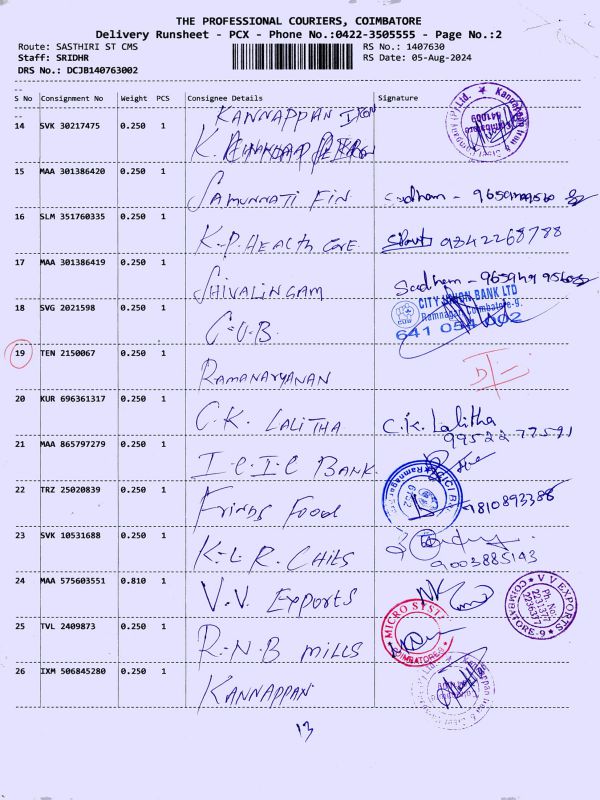 THE PROFESSIONAL COURIERS, COIMBATORE
Delivery Runsheet - PCX - Phone No.:0422-3505555 - Page No.:2
Route: SASTHIRI ST CMS RS No.: 1407630
Staff: SRIDHR RS Date: 05-Aug-2024
DRS No.: DCJB140763002
S No Consignment No Weight PCS Consignee Details Signature
14 SVK 30217475 0.250 1 KANNAPPAN IRON
15 MAA 301386420 0.250 1 SAMUNNATI FIN
16 SLM 351760335 0.250 1 K.P. HEALTH CARE 9842268788
17 MAA 301386419 0.250 1 SHIVALINGAM Sadham
18 SVG 2021598 0.250 1 C.U.B. CITY UNION BANK LTD
Ramnagar, Coimbatore-9.
641 054 002
19 TEN 2150067 0.250 1 RAMANARYANAN
20 KUR 696361317 0.250 1 C.K. LALITHA C.K. Lalitha
99522-77591
21 MAA 865797279 0.250 1 I.C.I.C BANK
22 TRZ 25020839 0.250 1 FRINDS FOOD 9810893388
23 SVK 10531688 0.250 1 K.L.R. CHITS
9003885143
24 MAA 575603551 0.810 1 V.V. EXPORTS V V EXPORTS
Ph. No:
2231377
2236377
COIMBATORE-9
25 TVL 2409873 0.250 1 R.N.B MILLS MICRO
COIMBATORE-9
26 IXM 506845280 0.250 1 KANNAPPAN
13